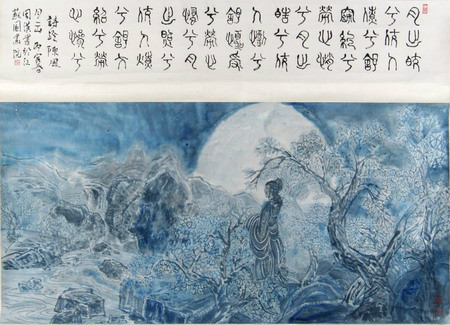 月出皎
兮佼人
僚兮舒
窈糾兮
勞心悄
兮月出
皓兮佼
人懰兮
舒懮受
兮勞心
慅兮月
出照兮
佼人燎
兮舒夭
紹兮勞
心慘兮
詩經陳風
月出丙寅
於江
蘇國畫院